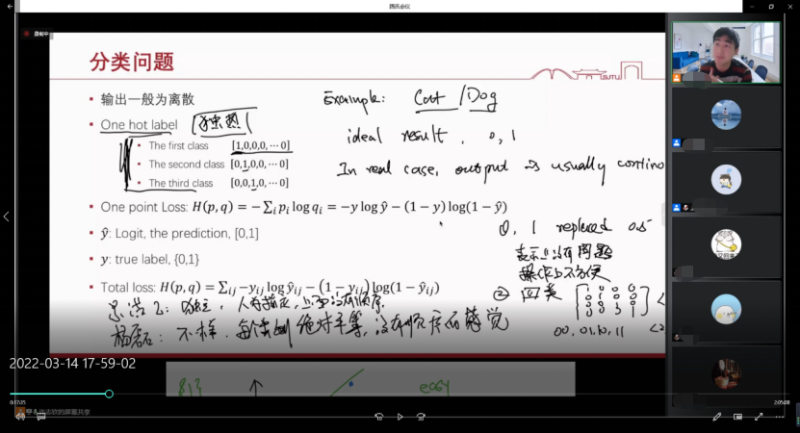 腾讯会议
分类问题
• 输出一般为离散
• One hot label 独热
• The first class [1,0,0,0,⋯0]
• The second class [0,1,0,0,⋯0]
• The third class [0,0,1,0,⋯0]
• One point Loss: H(p,q) = −∑ᵢ pᵢ log qᵢ = −y log ŷ − (1 − y) log(1 − ŷ)
• ŷ: Logit, the prediction, [0,1]
• y: true label, {0,1}
• Total loss: H(p,q) = ∑ᵢⱼ −yᵢⱼ log ŷᵢⱼ − (1 − yᵢⱼ) log(1 − ŷᵢⱼ)
Example: Cat / Dog
ideal result, 0, 1
In real case, output is usually continuo
0, 1 replaced 0.5
表示上没有问题
操作上不方便
② 四类
00, 01, 10, 11
不样, 每个类别 绝对平等, 没有顺序的感觉
easy
2022-03-14 17-59-02
0:17:25
2:05:08
的屏幕共享